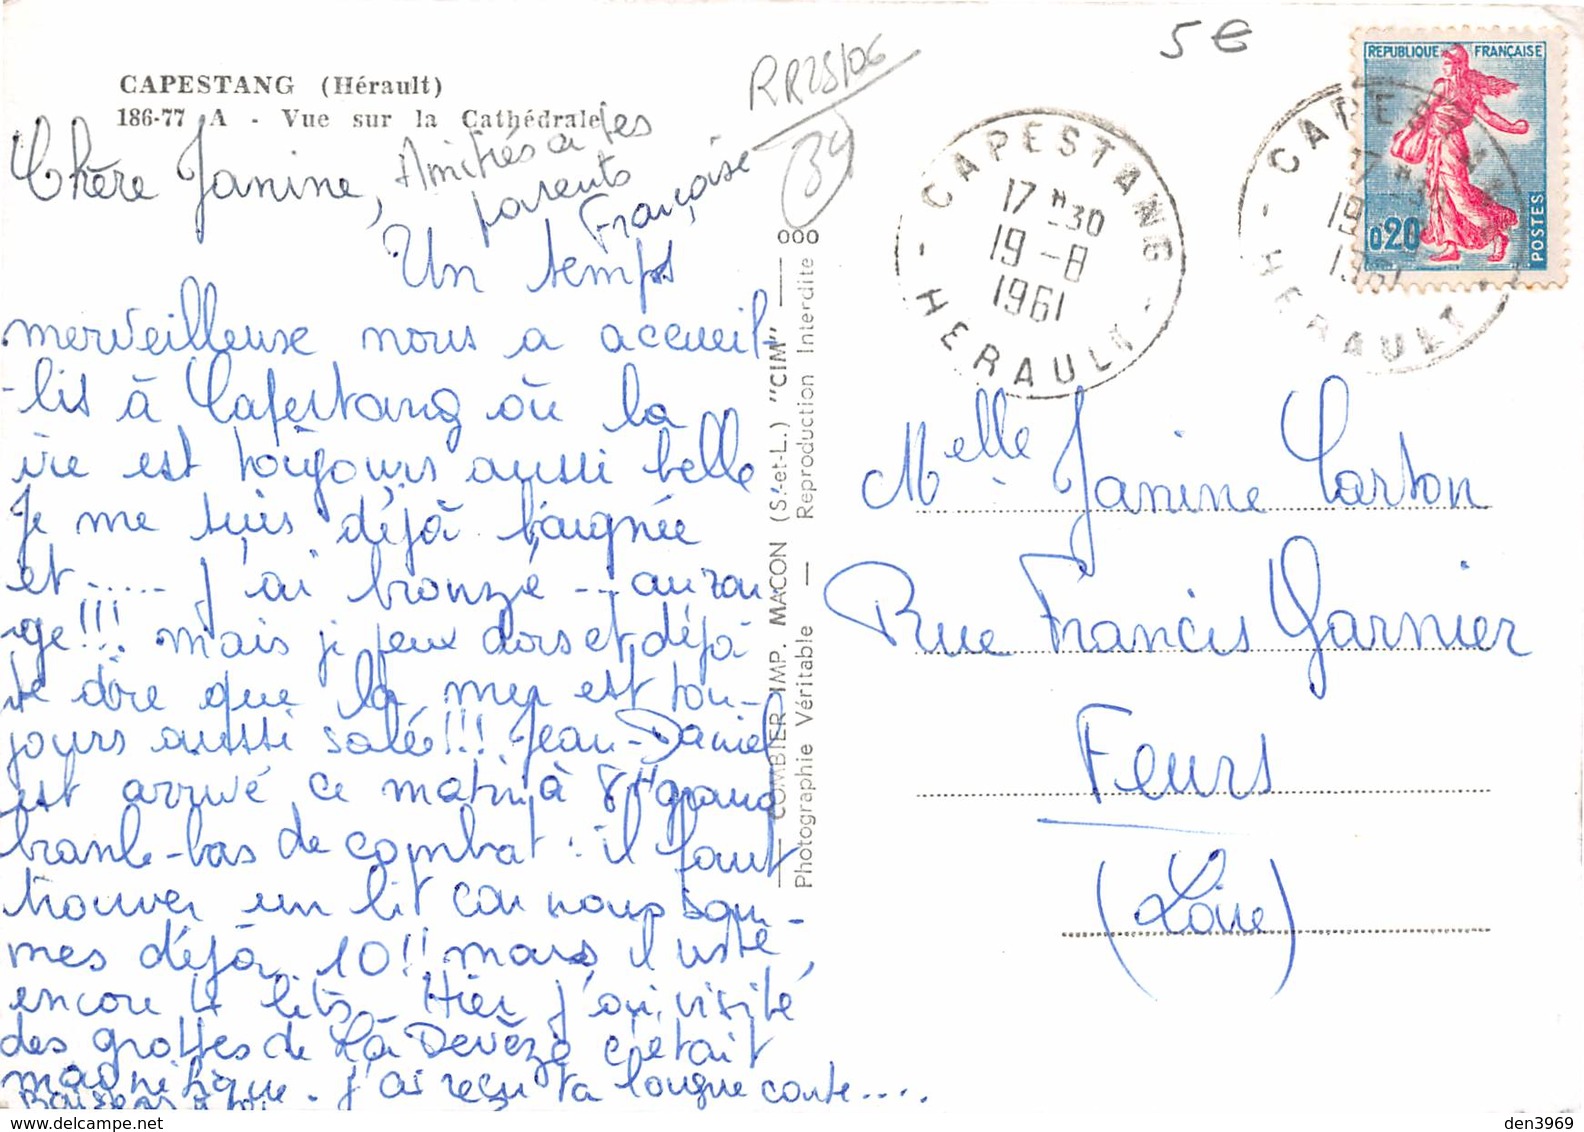 CAPESTANG (Hérault)
186-77 A - Vue sur la Cathédrale
Chère Janine,
Amitiés à tes
parents
Françoise
Un temps
merveilleux nous a accueil-
-lis à Capestang où la
vie est toujours aussi belle
Je me suis déjà baignée
et ..... j'ai bronzé -- au rou
ge!!! mais je peux dors et déjà
te dire que la mer est tou-
jours aussi salée!!! Jean-Daniel
est arrivé ce matin à 8H grand
branle-bas de combat : il faut
trouver un lit car nous som-
mes déjà 10!! mais il reste
encore 4 lits. Hier j'ai visité
des grottes de La Devèze c'était
magnifique. J'ai reçu ta longue carte....
Baisers à toi
RR25/06
34
5 €
COMBIER IMP. MACON (S.-et-L.) "CIM"
Photographie Véritable — Reproduction Interdite
000
CAPESTANG
17 H 30
19 - 8
1961
HERAULT
CAPESTANG
17 H 30
19
1961
HERAULT
REPUBLIQUE FRANÇAISE
0,20
POSTES
Melle Janine Carton
Rue Francis Garnier
Feurs
(Loire)
den3969